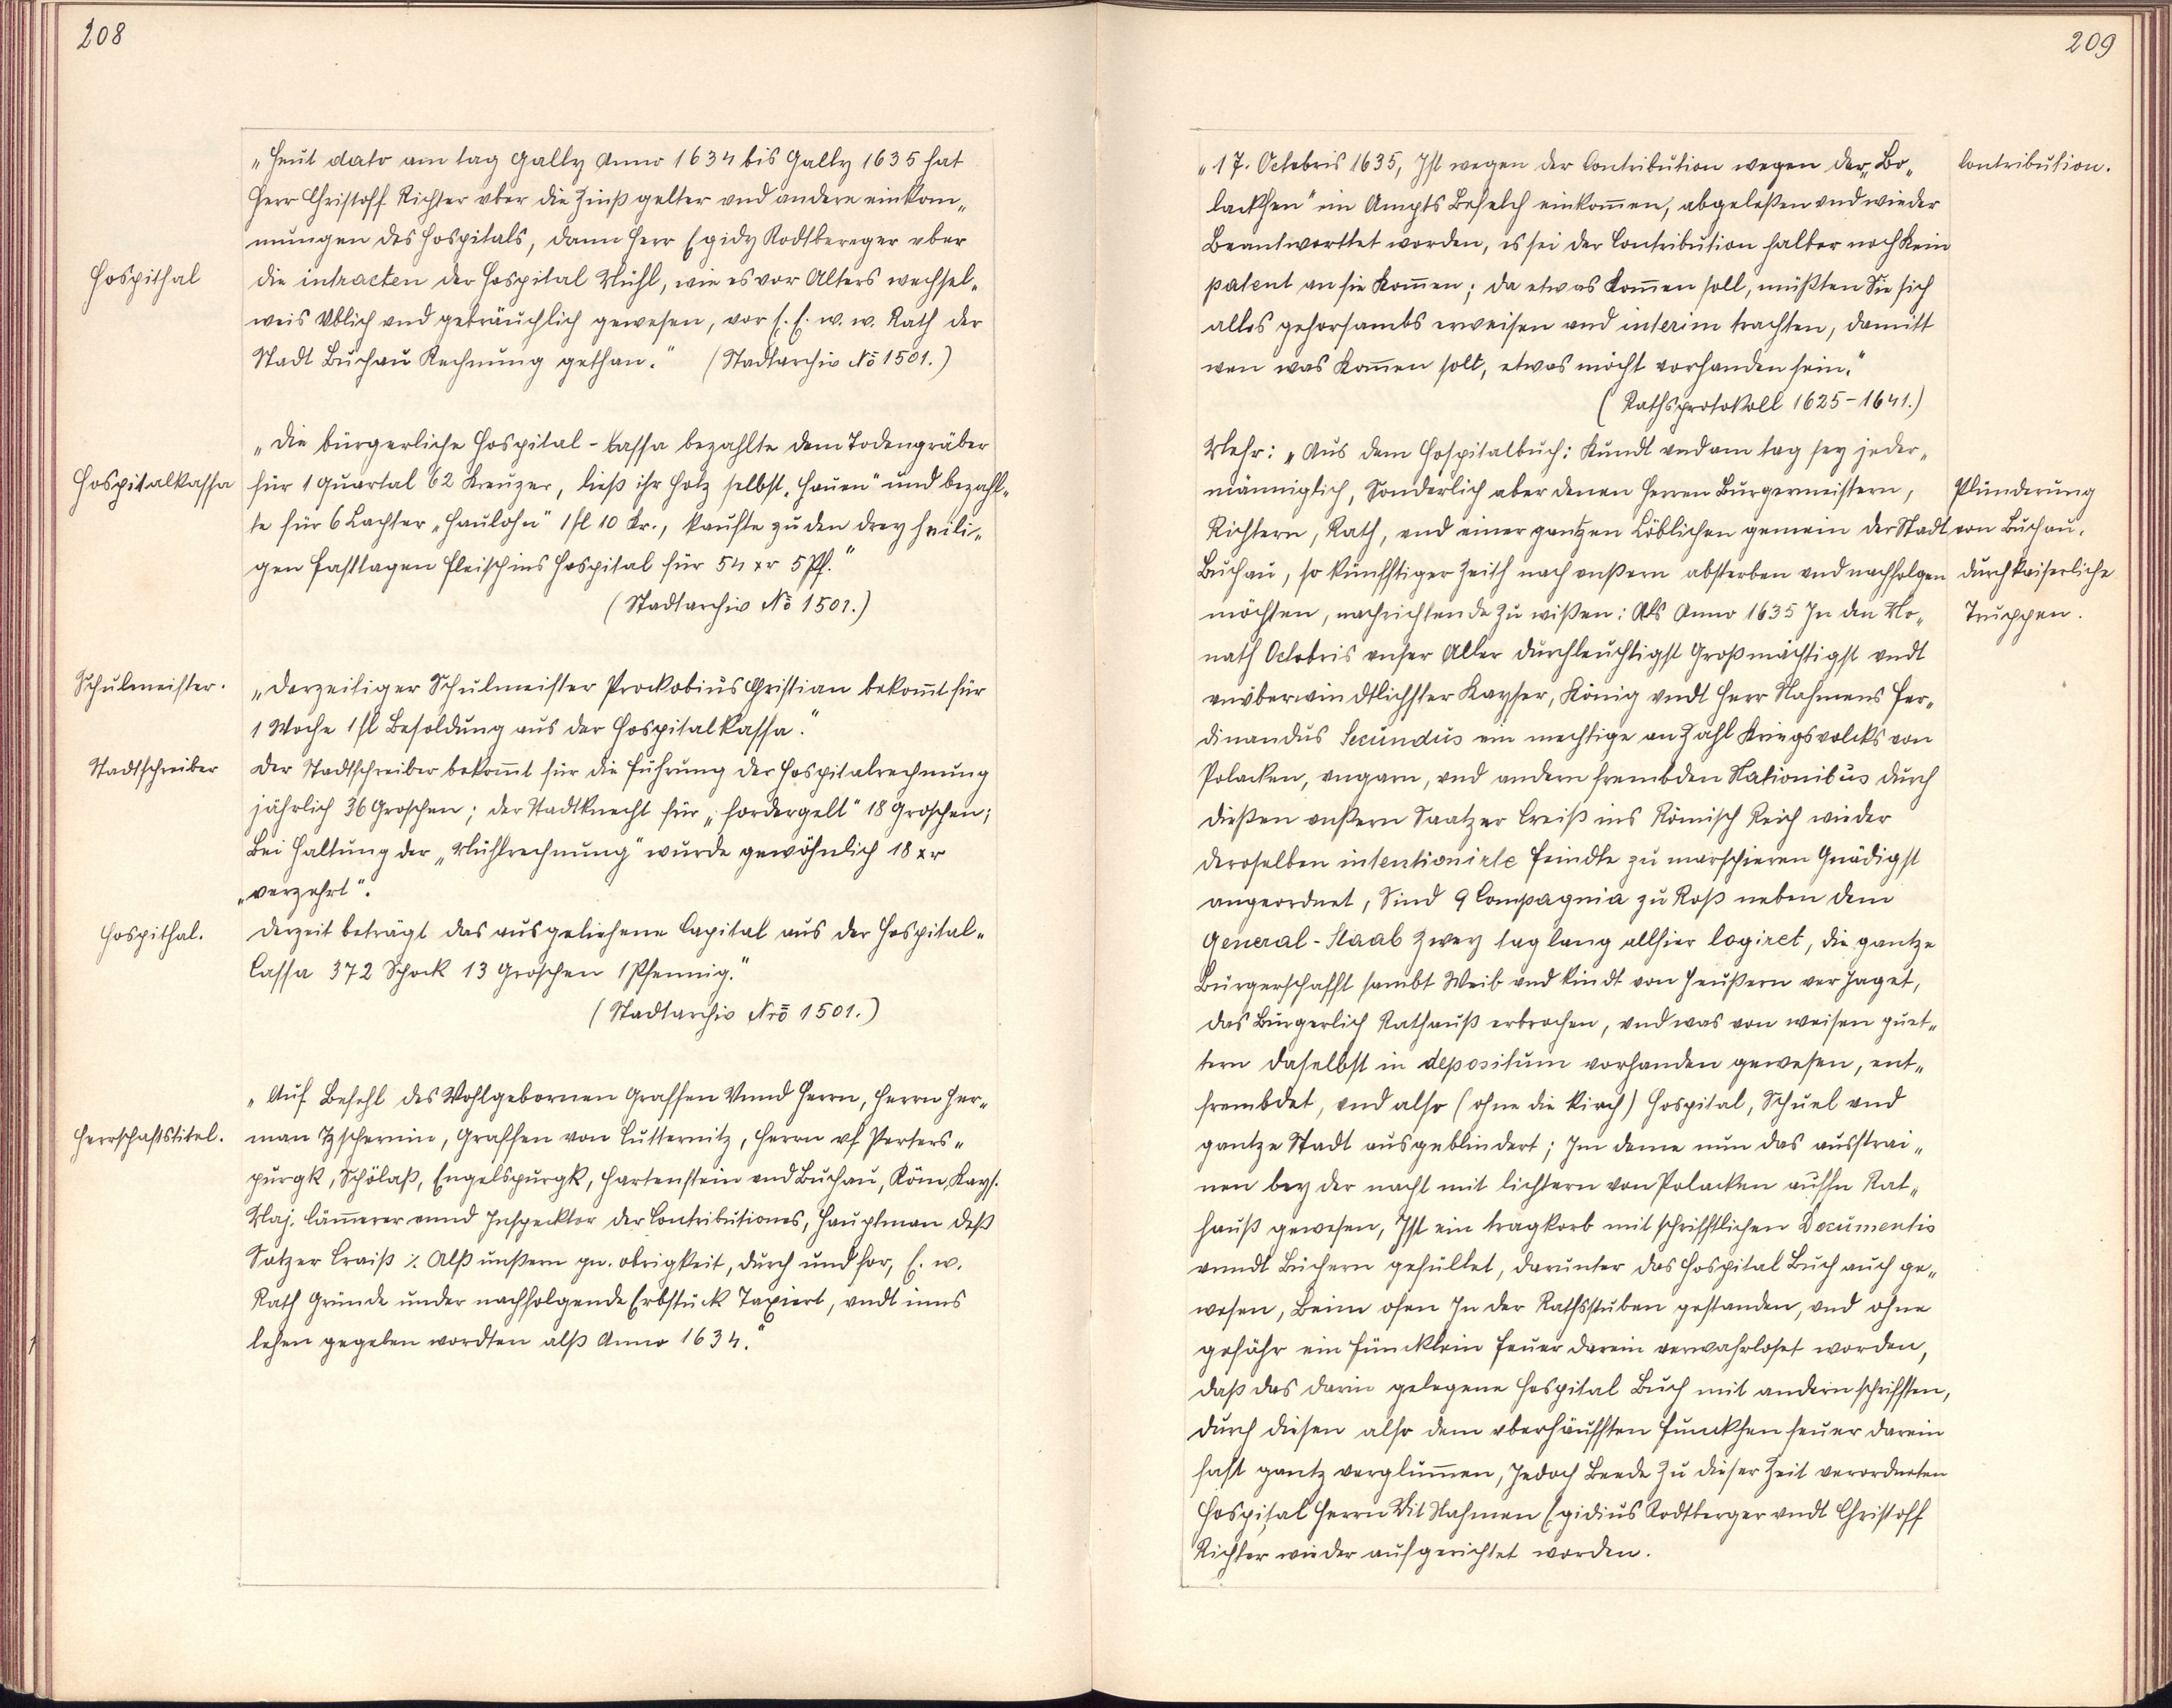 208
„Heut dato am tag Gally Anno 1634 bis Gally 1635 hat
Herr Christoff Richter vber die Zinß gelter vnd andere einkom„
mungen des Hospitals, dann Herr Egidy Rodtbereger vber
Hospithal
die intracten der Hospital Mühl, wie es vor Alters wechsel„
weis Vblich vnd gebräuchlich gewesen, vor E. E. w. w. Rath der
Stadt Buchau Rechnung gethan." (Stadtarchiv No 1501.)
„Die bürgerliche Hospital-Cassa bezahlte dem Todengräber
Hospitalkassa
für 1 Quartal 62 Kreuzer, ließ ihr Holz selbst „hauen" und bezahl„
te für 6 Lachter „Haulohn" 1 fl 10 Kr., kaufte zu den drey heili„
gen Fasttagen Fleisch ins Hospital für 54 xr 5 Pf."
(Stadtarchiv No 1501.)
Schulmeister.
„Derzeitiger Schulmeister Prockobius Christian bekom̄t für
1 Woche 1 fl Besoldung aus der Hospitalkassa."
Stadtschreiber
Der Stadtschreiber bekom̄t für die Führung der Hospitalrechnung
jährlich 36 Groschen; der Stadtknecht für „fordergelt" 18 Groschen;
Bei Haltung der „Mühlrechnung" wurde gewöhnlich 18 xr
„verzehrt".
Hospithal.
Derzeit beträgt das ausgeliehene Capital aus der Hospital„
Cassa 372 Schock 13 Groschen 1 Pfennig."
(Stadtarchiv Nro 1501.)
„Auf Befehl des Wohlgebornen Graffen Vnnd Herrn, Herrn Her„
Herrschaftstitel.
man Tzschernin, Graffen von Cutternitz, Herrn vf Peters„
purgk, Schölaß, Engelspurgk, Hartenstein vnd Buchau, Röm. Kays.
Maj. Cäm̄erer vnnd Inspecktor der Contributiones, Hauptman deß
Satzer Craiß ⁒ Alß unßern gn. obrigkeit, durch und for, E. w.
Rath Gründe under nachfolgende Erbstück Taxiert, vndt inns
lehen gegeben wordten alß Anno 1634."
209
„17. Octobris 1635, Ist wegen der Contribution wegen der „Bo„
Contribution.
lackhen" ein Ampts Befelch einkom̄en, abgeleßen vnd wieder
Beantworttet worden, es sei der Contribution halber noch Kein
patent an sie Kom̄en; da etwas Kom̄en soll, müßten Sie sich
alles gehorsambs erweisen vnd interim trachten, damitt
wen was Kom̄en solt, etwas möcht vorhanden sein."
(Rathsprotokoll 1625-1641.)
Mehr: „Aus dem Hospitalbuch: Kundt vnd am tag sey jeder„
männiglich, Sonderlich aber denen Herren Burgermeistern,
Plünderung
Richtern, Rath, vnd einer gantzen Löblichen gemein der Stadt
von Buchau.
Buchau, so künfftiger Zeith nach vnßern absterben vnd nachfolgen
durch kaiserliche
möchten, nachrichtende zu wißen: Als Anno 1635 In den Mo„
Truppen.
nath Octobris vnser Aller Durchleuchtigst Großmächtigst vndt
vnüberwindtlichster Kayser, König vndt Herr Nahmens Fer„
dinandus Secundus ein mechtige anzahl Kriegsvolcks von
Polacken, vngarn, vnd andern frembden Nationibus durch
dießen vnßern Saatzer Creiß ins Römisch Reich wieder
deroselben intentionirte Feindte zu marschieren Gnädigst
angeordnet, Sind 9 Compagnia zu Roß neben dem
General-Staab zwey tag lang allhier logiret, die gantze
Bürgerschafft sambt Weib vnd Kindt von Heußern verjaget,
das Bürgerlich Rathauß erbrochen, vnd was von weisen guet„
tern daselbst in depositum vorhanden gewesen, ent„
frembdet, vnd also (ohne die Kirch) Hospital, Schuel vnd
gantze Stadt ausgeblindert; Im deme nun das ausstrai„
nen bey der nacht mit lichtern von Polacken auffn Rat„
hauß gewesen, Ist ein tragkorb mit schrifftlichen Documentis
vnndt Büchern gefüllet, darunter das Hospital Buch auch ge„
wesen, Beim ofen In der Rathsstuben gestanden, vnd ohne
gefähr ein Füncklein Feuer darein verwahrloset worden,
daß das darin gelegene Hospital Buch mit andern schrifften,
durch diesen also dem vberhäufften Funckhen feuer darein
fast gantz verglum̄en, Jedoch Beede zu dieser Zeit verordneten
Hospital Herrn Mit Nahmen Egidius Rodtberger vndt Christoff
Richter wieder aufgerichtet worden.